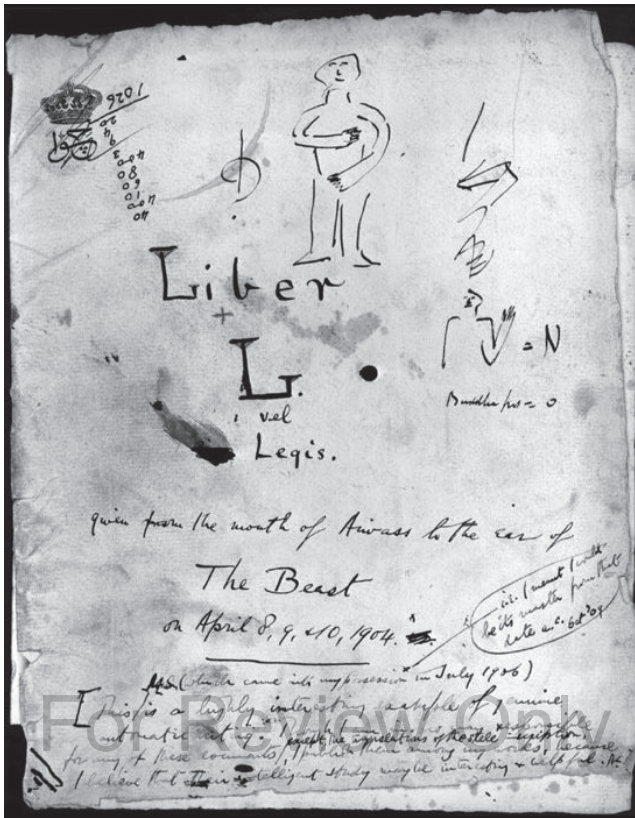 1026
20
Liber
L.
vel
Legis.
= N
Buddha = 0
given from the mouth of Aiwass to the ear of
The Beast
on April 8, 9, & 10, 1904.
i.e. I meant I would
be its master from that
date
MS. (which came into my possession in July 1906)
[This is a highly interesting example of genuine
automatic writing.
except the translations of the Stele inscription.
for any of these comments, I publish them among my works, because
I believe that their intelligent study may be interesting & helpful. A.C.
For Review Only